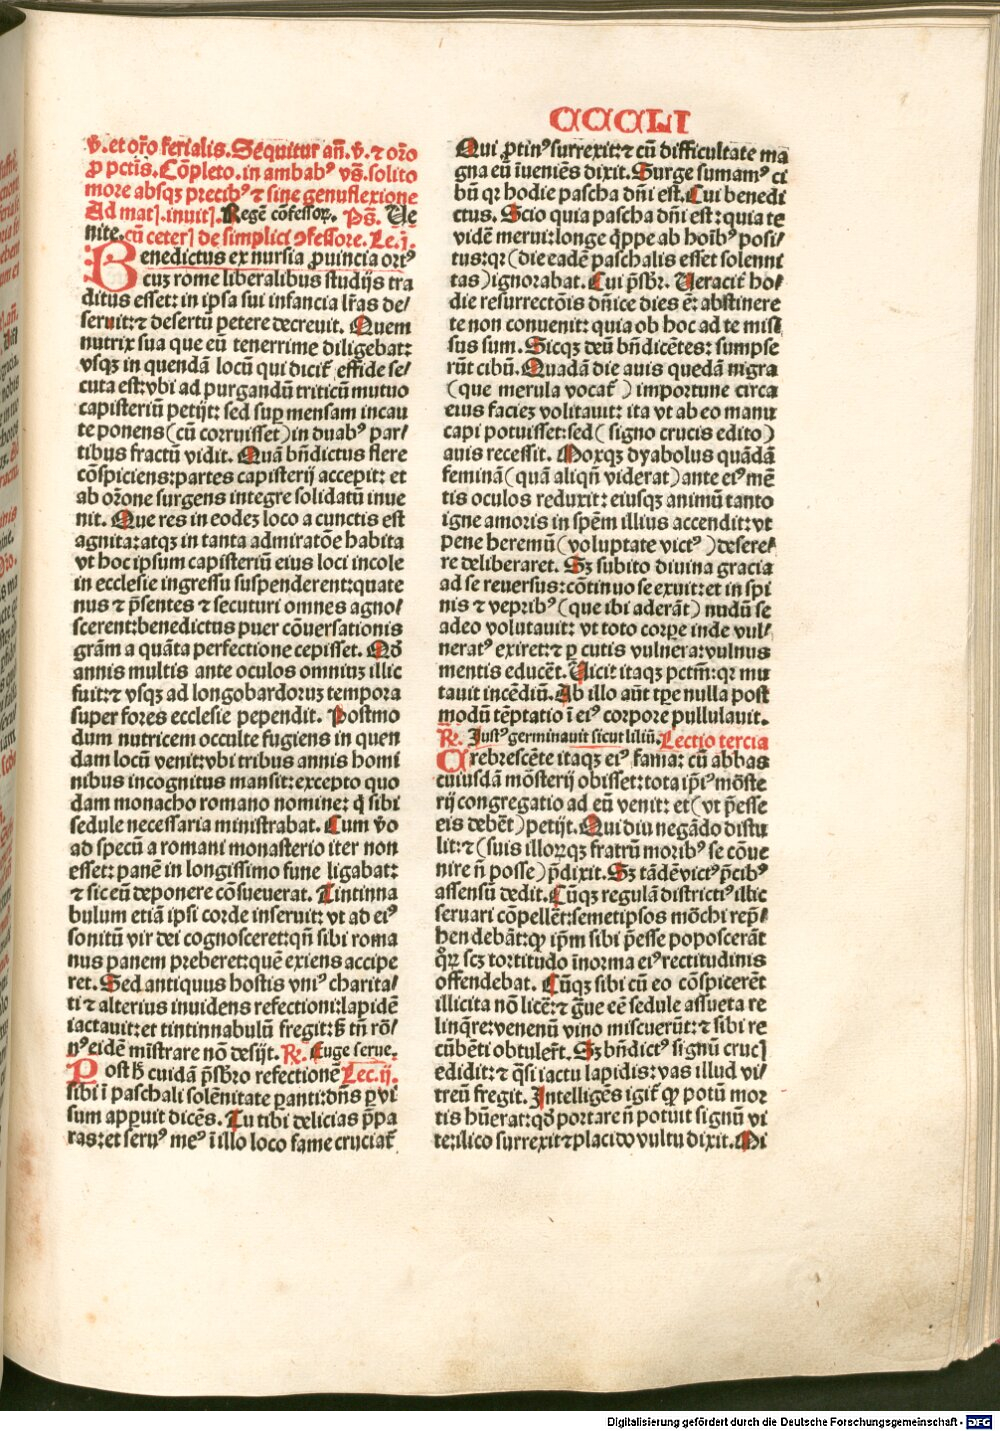 CCCLI
v̄. et or̄o ferialis. Sequitur an̄. v̄. ⁊ or̄o
ꝓ pctīs. Cōpleto. in ambabꝰ vs̄. solito
more absqꝫ precibꝰ ⁊ sine genuflexione
Ad matꝭ. inuitꝭ. Regē cōfessoꝝ. Ps̄. Ue
nite. cū ceterꝭ de simplici ꝯfessore. Le. j.
Benedictus ex nursia ꝓuincia ortꝰ
cuꝫ rome liberalibus studijs tra
ditus esset: in ipsa sui infancia lr̄as de⸗
seruit: ⁊ desertū petere decreuit. Quem
nutrix sua que eū tenerrime diligebat:
vsqꝫ in quendā locū qui dicit̄ effide se⸗
cuta est: vbi ad purgandū triticū mutuo
capisteriū petijt: sed suꝑ mensam incau
te ponens (cū corruisset) in duabꝰ par⸗
tibus fractū vidit. Quā bn̄dictus flere
cōspiciens: partes capisterij accepit: et
ab or̄one surgens integre solidatū inue
nit. Que res in eodeꝫ loco a cunctis est
agnita: atqꝫ in tanta admiratōe habita
vt hoc ipsum capisteriū eius loci incole
in ecclesie ingressu suspenderent: quate
nus ⁊ p̄sentes ⁊ secuturi omnes agno⸗
scerent: benedictus puer cōuersationis
grām a quāta perfectione cepisset. Qd̄
annis multis ante oculos omniuꝫ illic
fuit: ⁊ vsqꝫ ad longobardoruꝫ tempora
super fores ecclesie pependit. Postmo
dum nutricem occulte fugiens in quen
dam locū venit: vbi tribus annis homi
nibus incognitus mansit: excepto quo
dam monacho romano nomine: q̇ sibi
sedule necessaria ministrabat. Cum v̄o
ad specū a romani monasterio iter non
esset: panē in longissimo fune ligabat:
⁊ sic eū deponere cōsueuerat. Tintinna
bulum etiā ipsi corde inseruit: vt ad eiꝰ
sonitū vir dei cognosceret: qn̄ sibi roma
nus panem preberet: quē exiens accipe
ret. Sed antiquus hostis vniꝰ charita⸗
ti ⁊ alterius inuidens refectioni: lapidē
iactauit: et tintinnabulū fregit: ꞩ tn̄ ro⸗
nꝰ eidē mīstrare nō desijt. ℟. Euge serue.
Post h̄ cuidā p̄sbr̄o refectionē Lec. ij.
sibi ī paschali solēnitate ꝑanti: dn̄s ꝑ vi
sum apparuit dicēs. Tu tibi delicias p̄pa
ras: et seruꝰ meꝰ ī illo loco fame cruciat̄
Qui ꝓtinꝰ surrexit: ⁊ cū difficultate ma
gna eū īueniēs dixit. Surge sumamꝰ ci
bū qꝛ hodie pascha dn̄i est. Cui benedi
ctus. Scio quia pascha dn̄i est: quia te
vidē merui: longe q̇ppe ab hoībꝰ posi⸗
tus: qꝛ (die eadē paschalis esset solenni
tas) ignorabat. Cui p̄sbr̄. Ueracit̄ ho⸗
die resurrectōis dn̄ice dies ē: abstinere
te non conuenit: quia ob hoc ad te misi
sus sum. Sicqꝫ deū bn̄dicētes: sumpse
rūt cibū. Quadā die auis quedā nigra
(que merula vocat̄) importune circa
eius facieꝫ volitauit: ita vt ab eo manu
capi potuisset: sed (signo crucis edito)
auis recessit. Moxqꝫ dyabolus quādā
feminā (quā aliqn̄ viderat) ante eiꝰ mē
tis oculos reduxit: eiusqꝫ animū tanto
igne amoris in spēm illius accendit: vt
pene heremū (voluptate victꝰ) desere⸗
re deliberaret. Sꝫ subito diuina gracia
ad se reuersus: cōtinuo se exuit: et in spi
nis ⁊ vepribꝰ (que ibi aderāt) nudū se
adeo volutauit: vt toto corpe inde vul⸗
neratꝰ exiret: ⁊ ꝑ cutis vulnera: vulnus
mentis educēt. Uicit itaqꝫ pctm̄: qꝛ mu
tauit incēdiū. Ab illo aūt tꝑe nulla post
modū tēptatio ī eiꝰ corpore pullulauit.
℟. Justꝰ germinauit sicut liliū. Lectio tercia
Crebrescēte itaqꝫ eiꝰ fama: cū abbas
cuiusdā mōsterij obisset: tota ip̄iꝰ mōste
rij congregatio ad eū venit: et (vt p̄esse
eis debēt) petijt. Qui diu negādo distu
lit: ⁊ (suis illoꝝqꝫ fratrū moribꝰ se cōue
nire n̄ posse) p̄dixit. Sꝫ tādē victꝰ p̄cibꝰ
assensū dedit. Cūqꝫ regulā districtiꝰ illic
seruari cōpellēt: semetipsos mōchi rep̄⸗
hendebāt: qꝙ ip̄m sibi p̄esse poposcerāt
q̊ꝝ scꝫ tortitudo īnorma eiꝰ rectitudinis
offendebat. Cūqꝫ sibi cū eo cōspicerēt
illicita nō licē: ⁊ gͣue eē sedule assueta re
linq̄re: venenū vino miscuerūt: ⁊ sibi re
cūbēti obtuler̄t. Sꝫ bn̄dictꝰ signū crucꝭ
edidit: ⁊ qͣsi iactu lapidis: vas illud vi⸗
treū fregit. Intelligēs igit̄ qꝙ potū mor
tis hūerat: qd̄ portare n̄ potuit signū vi
te: ilico surrexit ⁊ placido vultu dixit. Mi
Digitalisierung gefördert durch die Deutsche Forschungsgemeinschaft - DFG